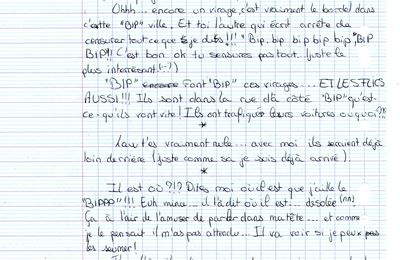 Ohhh... encore un virage, c'est vraiment le bordel dans
cette "BIP" ville. Et toi l'autre qui écrit arrête de
censurer tout ce que je dis!!! "Bip, bip bip bip bip "BIP
BIP!! C'est bon ok tu censures pas tout... juste le
plus interressant (-.-)
"BIP" encore Font "BIP" ces virages... ET LES FLICS
AUSSI!!! Ils sont dans la rue d'à côté "BIP" qu'est-
ce-qu'ils vont vite! Ils ont trafiquer leurs voitures ou quoi?!
*
t'es vraiment nulle... avec moi ils seraient déjà
loin derrière (juste comme sa je suis déjà arrivé).
*
Il est où?!? Dites moi où il est que j'aille le
"BIPPP"!!! Euh mince... il l'a dit où il est... désolée (^^)
Ça à l'air de l'amuser de parler dans ma tête... et comme
je le pensait il m'as pas attendu... Il va voir si je peux pas
les semer!